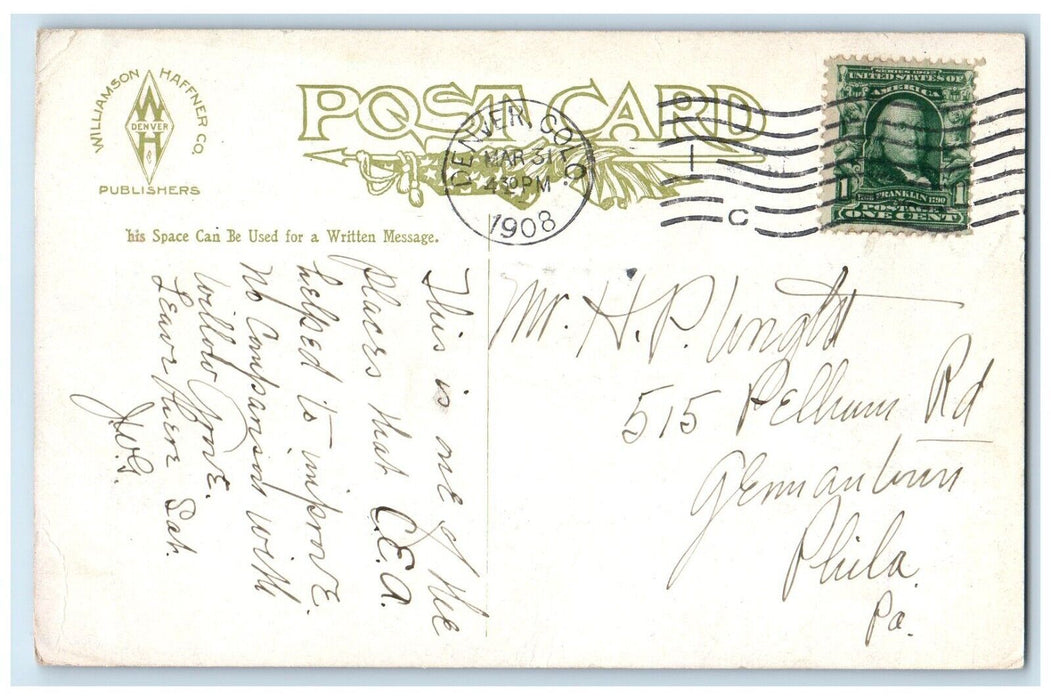 WILLIAMSON HAFFNER CO.
W
DENVER
H
PUBLISHERS
POST CARD
his Space Can Be Used for a Written Message.
DENVER, COLO.
MAR 31
4 30 PM
1908
C
SERIES 1902
UNITED STATES OF
AMERICA
1 FRANKLIN 1790 1
POSTAGE
ONE CENT
This is one of the
places that C.E.A.
helped to improve.
No Comparison with
Willow Grove.
Leave here Sat.
J.W.G.
Mr. H. P. Wright
515 Pelham Rd
Germantown
Phila.
Pa.